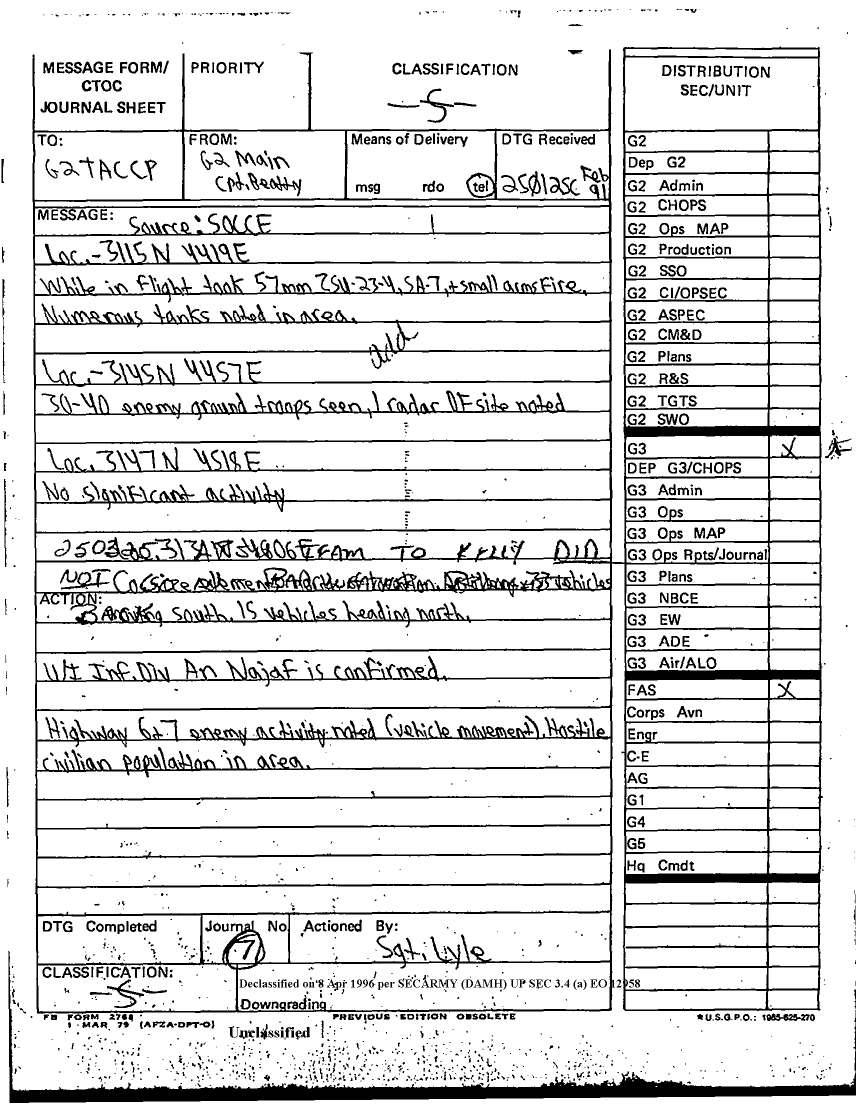 MESSAGE FORM/ CTOC JOURNAL SHEET
PRIORITY
CLASSIFICATION
-S-
TO:
G2 TACCP
FROM:
G2 Main
Cpt. Beatty
Means of Delivery
msg rdo tel
DTG Received
250125C Feb 91
MESSAGE:
Source: SOCCE
Loc.-3115N 4419E
While in flight took 57mm ZSU-23-4, SA-7, + small arms fire.
Numerous tanks noted in area.
add
Loc.-3145N 4457E
30-40 enemy ground troops seen, 1 radar DF site noted
Loc. 3147N 4518E
No significant activity
TO KELLY DID
NOT vehicles
ACTION:
moving south. 15 vehicles heading north.
U/I Inf. Div An Najaf is confirmed.
Highway 6+7 enemy activity noted (vehicle movement). Hostile
civilian population in area.
DTG Completed
Journal No.
7
Actioned By:
Sgt. Lyle
CLASSIFICATION:
-S-
Declassified on 8 Apr 1996 per SECARMY (DAMH) UP SEC 3.4 (a) EO 12958
Downgrading
FB FORM 2768
1 MAR 79 (AFZA-DPT-O)
PREVIOUS EDITION OBSOLETE
Unclassified
DISTRIBUTION
SEC/UNIT
G2
Dep G2
G2 Admin
G2 CHOPS
G2 Ops MAP
G2 Production
G2 SSO
G2 CI/OPSEC
G2 ASPEC
G2 CM&D
G2 Plans
G2 R&S
G2 TGTS
G2 SWO
G3 X
DEP G3/CHOPS
G3 Admin
G3 Ops
G3 Ops MAP
G3 Ops Rpts/Journal
G3 Plans
G3 NBCE
G3 EW
G3 ADE
G3 Air/ALO
FAS X
Corps Avn
Engr
C-E
AG
G1
G4
G5
Hq Cmdt
*U.S.G.P.O.: 1985-625-270